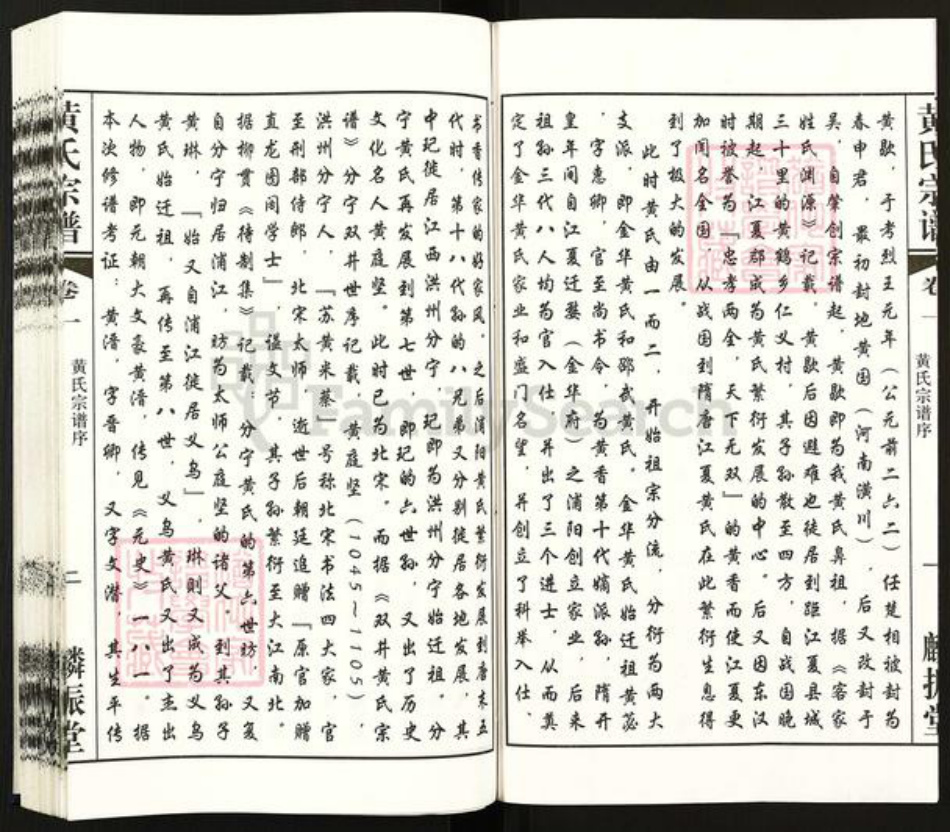 黄氏宗谱
卷一
黄氏宗谱序
一
麟振堂
黄歇，于考烈王元年（公元前二六二）任楚相被封为
春申君，最初封地黄国（河南潢川），后又改封于
吴，自肇创宗谱起，黄歇即为我黄氏鼻祖，据《客家
姓氏渊源》记载，黄歇后因避难也徒居到距江夏县城
三十里的黄鹤乡仁义村，其子孙散至四方，自战国晚
期起，江夏郡成为黄氏繁衍发展的中心。后又因东汉
时被誉为『忠孝两全，天下无双』的黄香而使江夏更
加闻名全国，从战国到隋唐江夏黄氏在此繁衍生息得
到了极大的发展。
此时黄氏由一而二，开始祖宗分流，分衍为两大
支派，即金华黄氏和邵武黄氏。金华黄氏始迁祖黄苾
，字惠卿，官至尚书令，为黄香第十代嫡派孙，隋开
皇年间自江夏迁婺（金华府）之浦阳创立家业，后来
祖孙三代八人均为官入仕，并出了三个进士，从而奠
定了金华黄氏家业和盛门名望，并创立了科举入仕、
书香传家的好家风，之后浦阳黄氏繁衍发展到唐末五
代时，第十八代孙的八兄弟又分别徙居各地发展，其
中玘徙居江西洪州分宁，玘即为洪州分宁始迁祖。分
宁黄氏再发展到第七世，即玘的六世孙，又出了历史
文化名人黄庭坚。此时已为北宋。而据《双井黄氏宗
谱》分宁双井世序记载，黄庭坚（1045～1105），
洪州分宁人，「苏黄米蔡」号称北宋书法四大家，官
至刑部侍郎，北宋太师，逝世后朝廷追赠『原官加赠
直龙图阁学士』，谥文节，其子孙繁衍至大江南北。
据柳贯《待制集》记载：分宁黄氏的第六世昉，又复
自分宁归居浦江，昉为太师公庭坚的诸父。到其孙子
黄琳，「始又自浦江徙居义乌」，琳则又成为义乌
黄氏始迁祖，再传至第八世，义乌黄氏又出了杰出
人物，即元朝大文豪黄溍，传见《元史》一八一。据
本次修谱考证：黄溍，字晋卿，又字文潜，其生平传
黄氏宗谱
卷一
黄氏宗谱序
二
麟振堂
FamilySearch